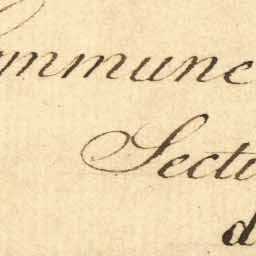 ommune
Secti
d